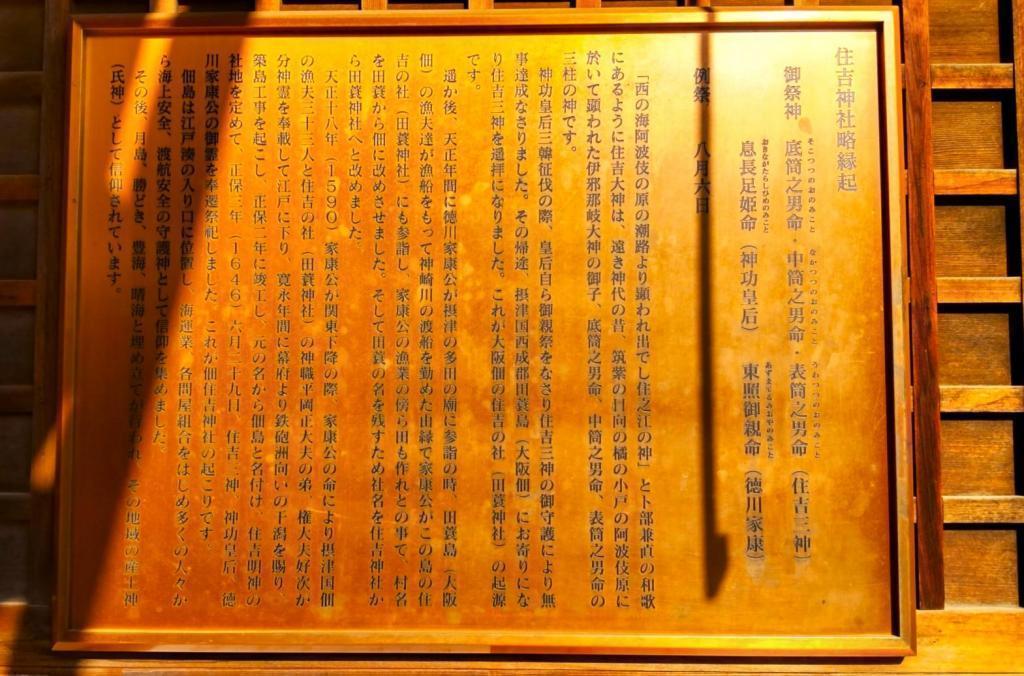 住吉神社略縁起
御祭神　底筒之男命・中筒之男命・表筒之男命（住吉三神）
そこつつのおのみこと　なかつつのおのみこと　うわつつのおのみこと
息長足姫命（神功皇后）　東照御親命（徳川家康）
おきながたらしひめのみこと　あずまてるみおやのみこと
例祭　八月六日
「西の海阿波伎の原の潮路より顕われ出でし住之江の神」と卜部兼直の和歌
にあるように住吉大神は、遠き神代の昔、筑紫の日向の橘の小戸の阿波伎原に
於いて顕われた伊邪那岐大神の御子、底筒之男命、中筒之男命、表筒之男命の
三柱の神です。
神功皇后三韓征伐の際、皇后自ら御親祭をなさり住吉三神の御守護により無
事達成なさりました。その帰途、摂津国西成郡田蓑島（大阪佃）にお寄りにな
り住吉三神を遥拝になりました。これが大阪佃の住吉の社（田蓑神社）の起源
です。
遥か後、天正年間に徳川家康公が摂津の多田の廟に参詣の時、田蓑島（大阪
佃）の漁夫達が漁船をもって神崎川の渡船を勤めた由縁で家康公がこの島の住
吉の社（田蓑神社）にも参詣し、家康公の漁業の傍ら田も作れとの事で、村名
を田蓑から佃に改めさせました。そして田蓑の名を残すため社名を住吉神社か
ら田蓑神社へと改めました。
天正十八年（１５９０）家康公が関東下降の際、家康公の命により摂津国佃
の漁夫三十三人と住吉の社（田蓑神社）の神職平岡正大夫の弟、権大夫好次が
分神霊を奉載して江戸に下り、寛永年間に幕府より鉄砲洲向いの干潟を賜り、
築島工事を起こし、正保二年に竣工し、元の名から佃島と名付け、住吉明神の
社地を定めて、正保三年（１６４６）六月二十九日、住吉三神、神功皇后、徳
川家康公の御霊を奉遷祭祀しました。これが佃住吉神社の起こりです。
佃島は江戸湊の入り口に位置し、海運業、各問屋組合をはじめ多くの人々か
ら海上安全、渡航安全の守護神として信仰を集めました。
その後、月島、勝どき、豊海、晴海と埋め立てが行われ、その地域の産土神
（氏神）として信仰されています。